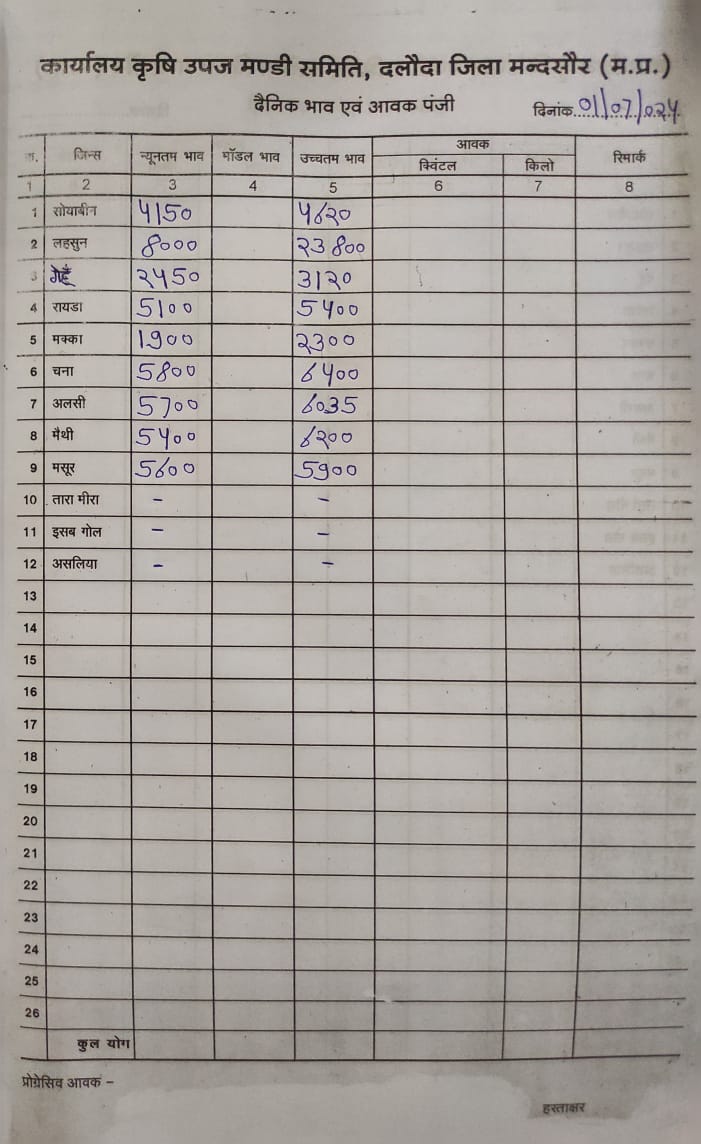 कार्यालय कृषि उपज मण्डी समिति, दलौदा जिला मन्दसौर (म.प्र.)
दैनिक भाव एवं आवक पंजी दिनांक 01/07/0२4
क्र. जिन्स न्यूनतम भाव मॉडल भाव उच्चतम भाव आवक रिमार्क
क्विंटल किलो
1 2 3 4 5 6 7 8
1 सोयाबीन 4150 46२0
2 लहसुन 8000 २3800
3 गेहूँ २450 31२0
4 रायडा 5100 5400
5 मक्का 1900 २300
6 चना 5800 6400
7 अलसी 5700 6035
8 मैथी 5400 6२00
9 मसूर 5600 5900
10 तारा मीरा - -
11 इसब गोल - -
12 असलिया - -
13
14
15
16
17
18
19
20
21
22
23
24
25
26
कुल योग
प्रोग्रेसिव आवक -
हस्ताक्षर